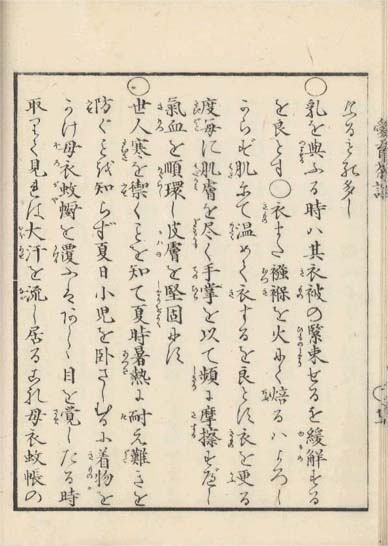 ぶるこれ多し
○乳を與ふる時ハ其衣被の緊束せるを緩解する
を良とす○衣また襁褓を火にて焙るハよろし
からず肌にて温めて衣するを良とす衣を更る
度毎に肌膚を尽く手掌を以て頻に摩擦すべし
氣血を順環し皮膚を堅固にす
○世人寒を禦くことを知て夏時暑熱に耐え難きを
防ぐことを知らず夏日小児を卧さしむるに着物を
かけ母衣蚊幮を覆ふ
目を覚したる時
取りて見れは大汗を流し居る是れ母衣蚊帳の